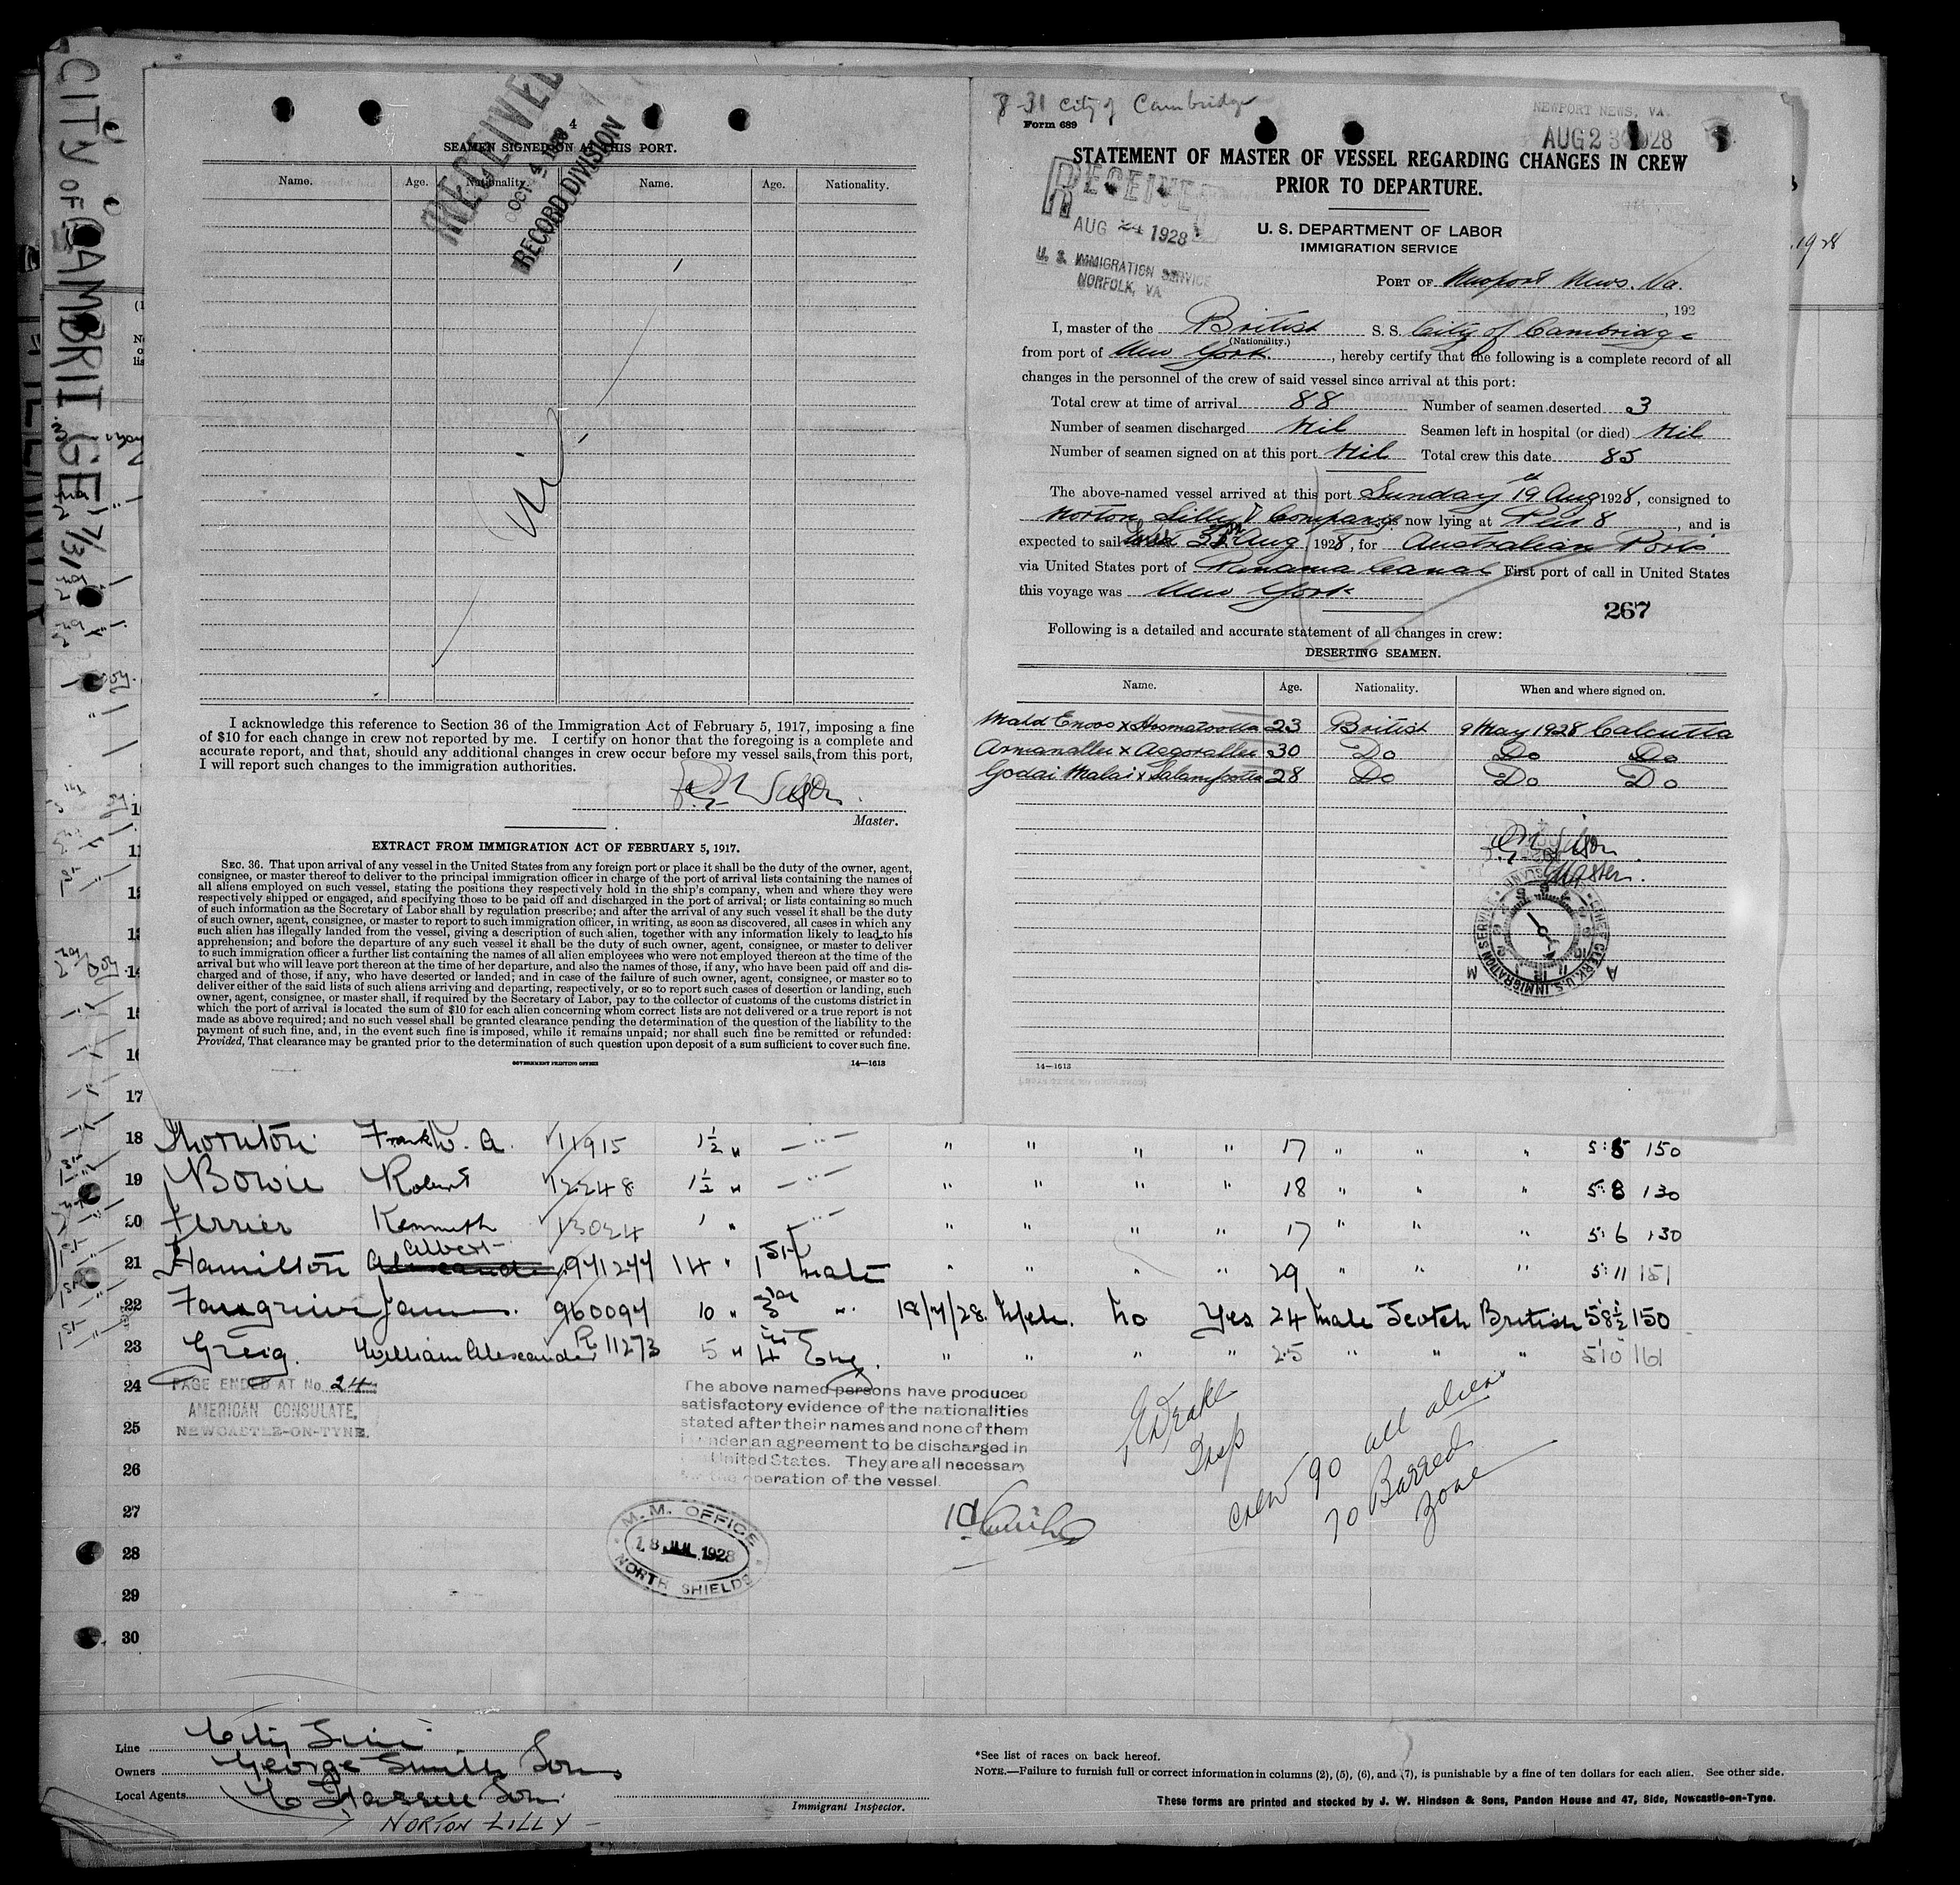 CITY OF CAMBRIDGE 7/31
4
SEAMEN SIGNED ON AT THIS PORT.
RECEIVED
OCT 4 1928
RECORD DIVISION
Name. Age. Nationality. Name. Age. Nationality.
Nil
I acknowledge this reference to Section 36 of the Immigration Act of February 5, 1917, imposing a fine
of $10 for each change in crew not reported by me. I certify on honor that the foregoing is a complete and
accurate report, and that, should any additional changes in crew occur before my vessel sails from this port,
I will report such changes to the immigration authorities.
Master.
EXTRACT FROM IMMIGRATION ACT OF FEBRUARY 5, 1917.
SEC. 36. That upon arrival of any vessel in the United States from any foreign port or place it shall be the duty of the owner, agent,
consignee, or master thereof to deliver to the principal immigration officer in charge of the port of arrival lists containing the names of
all aliens employed on such vessel, stating the positions they respectively hold in the ship's company, when and where they were
respectively shipped or engaged, and specifying those to be paid off and discharged in the port of arrival; or lists containing so much
of such information as the Secretary of Labor shall by regulation prescribe; and after the arrival of any such vessel it shall be the duty
of such owner, agent, consignee, or master to report to such immigration officer, in writing, as soon as discovered, all cases in which any
such alien has illegally landed from the vessel, giving a description of such alien, together with any information likely to lead to his
apprehension; and before the departure of any such vessel it shall be the duty of such owner, agent, consignee, or master to deliver
to such immigration officer a further list containing the names of all alien employees who were not employed thereon at the time of the
arrival but who will leave port thereon at the time of her departure, and also the names of those, if any, who have been paid off and dis-
charged and of those, if any, who have deserted or landed; and in case of the failure of such owner, agent, consignee, or master so to
deliver either of the said lists of such aliens arriving and departing, respectively, or so to report such cases of desertion or landing, such
owner, agent, consignee, or master shall, if required by the Secretary of Labor, pay to the collector of customs of the customs district in
which the port of arrival is located the sum of $10 for each alien concerning whom correct lists are not delivered or a true report is not
made as above required; and no such vessel shall be granted clearance pending the determination of the question of the liability to the
payment of such fine, and, in the event such fine is imposed, while it remains unpaid; nor shall such fine be remitted or refunded:
Provided, That clearance may be granted prior to the determination of such question upon deposit of a sum sufficient to cover such fine.
GOVERNMENT PRINTING OFFICE 14—1613
8-31 City of Cambridge
Form 689
NEWPORT NEWS, VA.
AUG 23 1928
STATEMENT OF MASTER OF VESSEL REGARDING CHANGES IN CREW
PRIOR TO DEPARTURE.
RECEIVED
AUG 24 1928
U. S. IMMIGRATION SERVICE
NORFOLK, VA.
U. S. DEPARTMENT OF LABOR
IMMIGRATION SERVICE
PORT OF Newport News. Va.
, 192
I, master of the British S. S. City of Cambridge
(Nationality.)
from port of New York, hereby certify that the following is a complete record of all
changes in the personnel of the crew of said vessel since arrival at this port:
Total crew at time of arrival 88 Number of seamen deserted 3
Number of seamen discharged Nil Seamen left in hospital (or died) Nil
Number of seamen signed on at this port Nil Total crew this date 85
The above-named vessel arrived at this port Sunday 19th Aug 1928, consigned to
Norton Lilly & Company, is now lying at Pier 8, and is
expected to sail Aug, 1928, for Australian Ports
via United States port of Panama Canal First port of call in United States
this voyage was New York
267
Following is a detailed and accurate statement of all changes in crew:
DESERTING SEAMEN.
Name. Age. Nationality. When and where signed on.
23 British 9 May 1928 Calcutta
30 Do Do Do
Godai Malai x 28 Do Do Do
Master.
14—1613
18 Thornton Frank W. A. 11915 1½ " " " " " 17 " " " 5:5 150
19 Bowie Robert 12248 1½ " " " " " 18 " " " 5:8 130
20 Ferrier Kenneth 13024 1 " " " " " 17 " " " 5:6 130
21 Hamilton Albert 941244 14 " 1st Mate " " " " 29 " " " 5:11 151
22 James 960094 10 " 3rd " 18/7/28 N/ch. No Yes 24 Male Scotch British 5'8½ 150
23 Greig. William Alexander R 11273 5 " 4th Eng. " " " " 25 " " " 5'10 161
24 PAGE ENDED AT No. 24
AMERICAN CONSULATE,
NEWCASTLE-ON-TYNE.
The above named persons have produced
satisfactory evidence of the nationalities
stated after their names and none of them
under an agreement to be discharged in
United States. They are all necessary
the operation of the vessel.
Drake
Insp
Crew 90 all aliens
70 Barred
zone
25
26
27
28
29
30
M. M. OFFICE
18 JUL 1928
NORTH SHIELDS
Line City Line
Owners George Smith Sons
Local Agents Son.
NORTON LILLY
Immigrant Inspector.
*See list of races on back hereof.
NOTE.—Failure to furnish full or correct information in columns (2), (5), (6), and (7), is punishable by a fine of ten dollars for each alien. See other side.
These forms are printed and stocked by J. W. Hindson & Sons, Pandon House and 47, Side, Newcastle-on-Tyne.